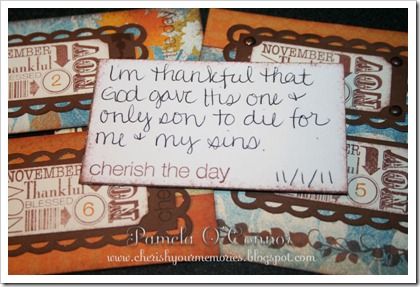 NOVEMBER
Thankful
BLESSED
NOV
2
NOVEMBER
Thankful
BLESSED
NOV
1
Im thankful that
God gave His one &
only son to die for
me & my sins.
cherish the day
11/1/11
NOVEMBER
Thankful
BLESSED
NOV
6
NOV
5
Pamela O'Connor
www.cherishyourmemories.blogspot.com